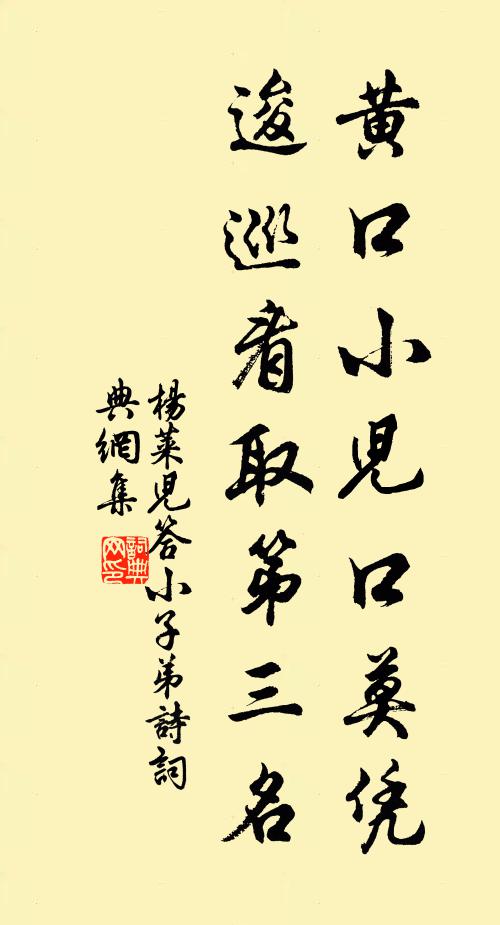 黃口小兒口莫凭
逡巡看取第三名
楊萊兒答小子弟詩詞
典網集
詞典
网印